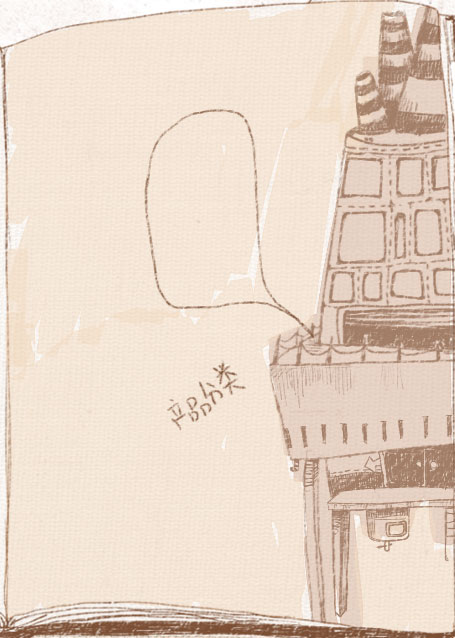 产品分类